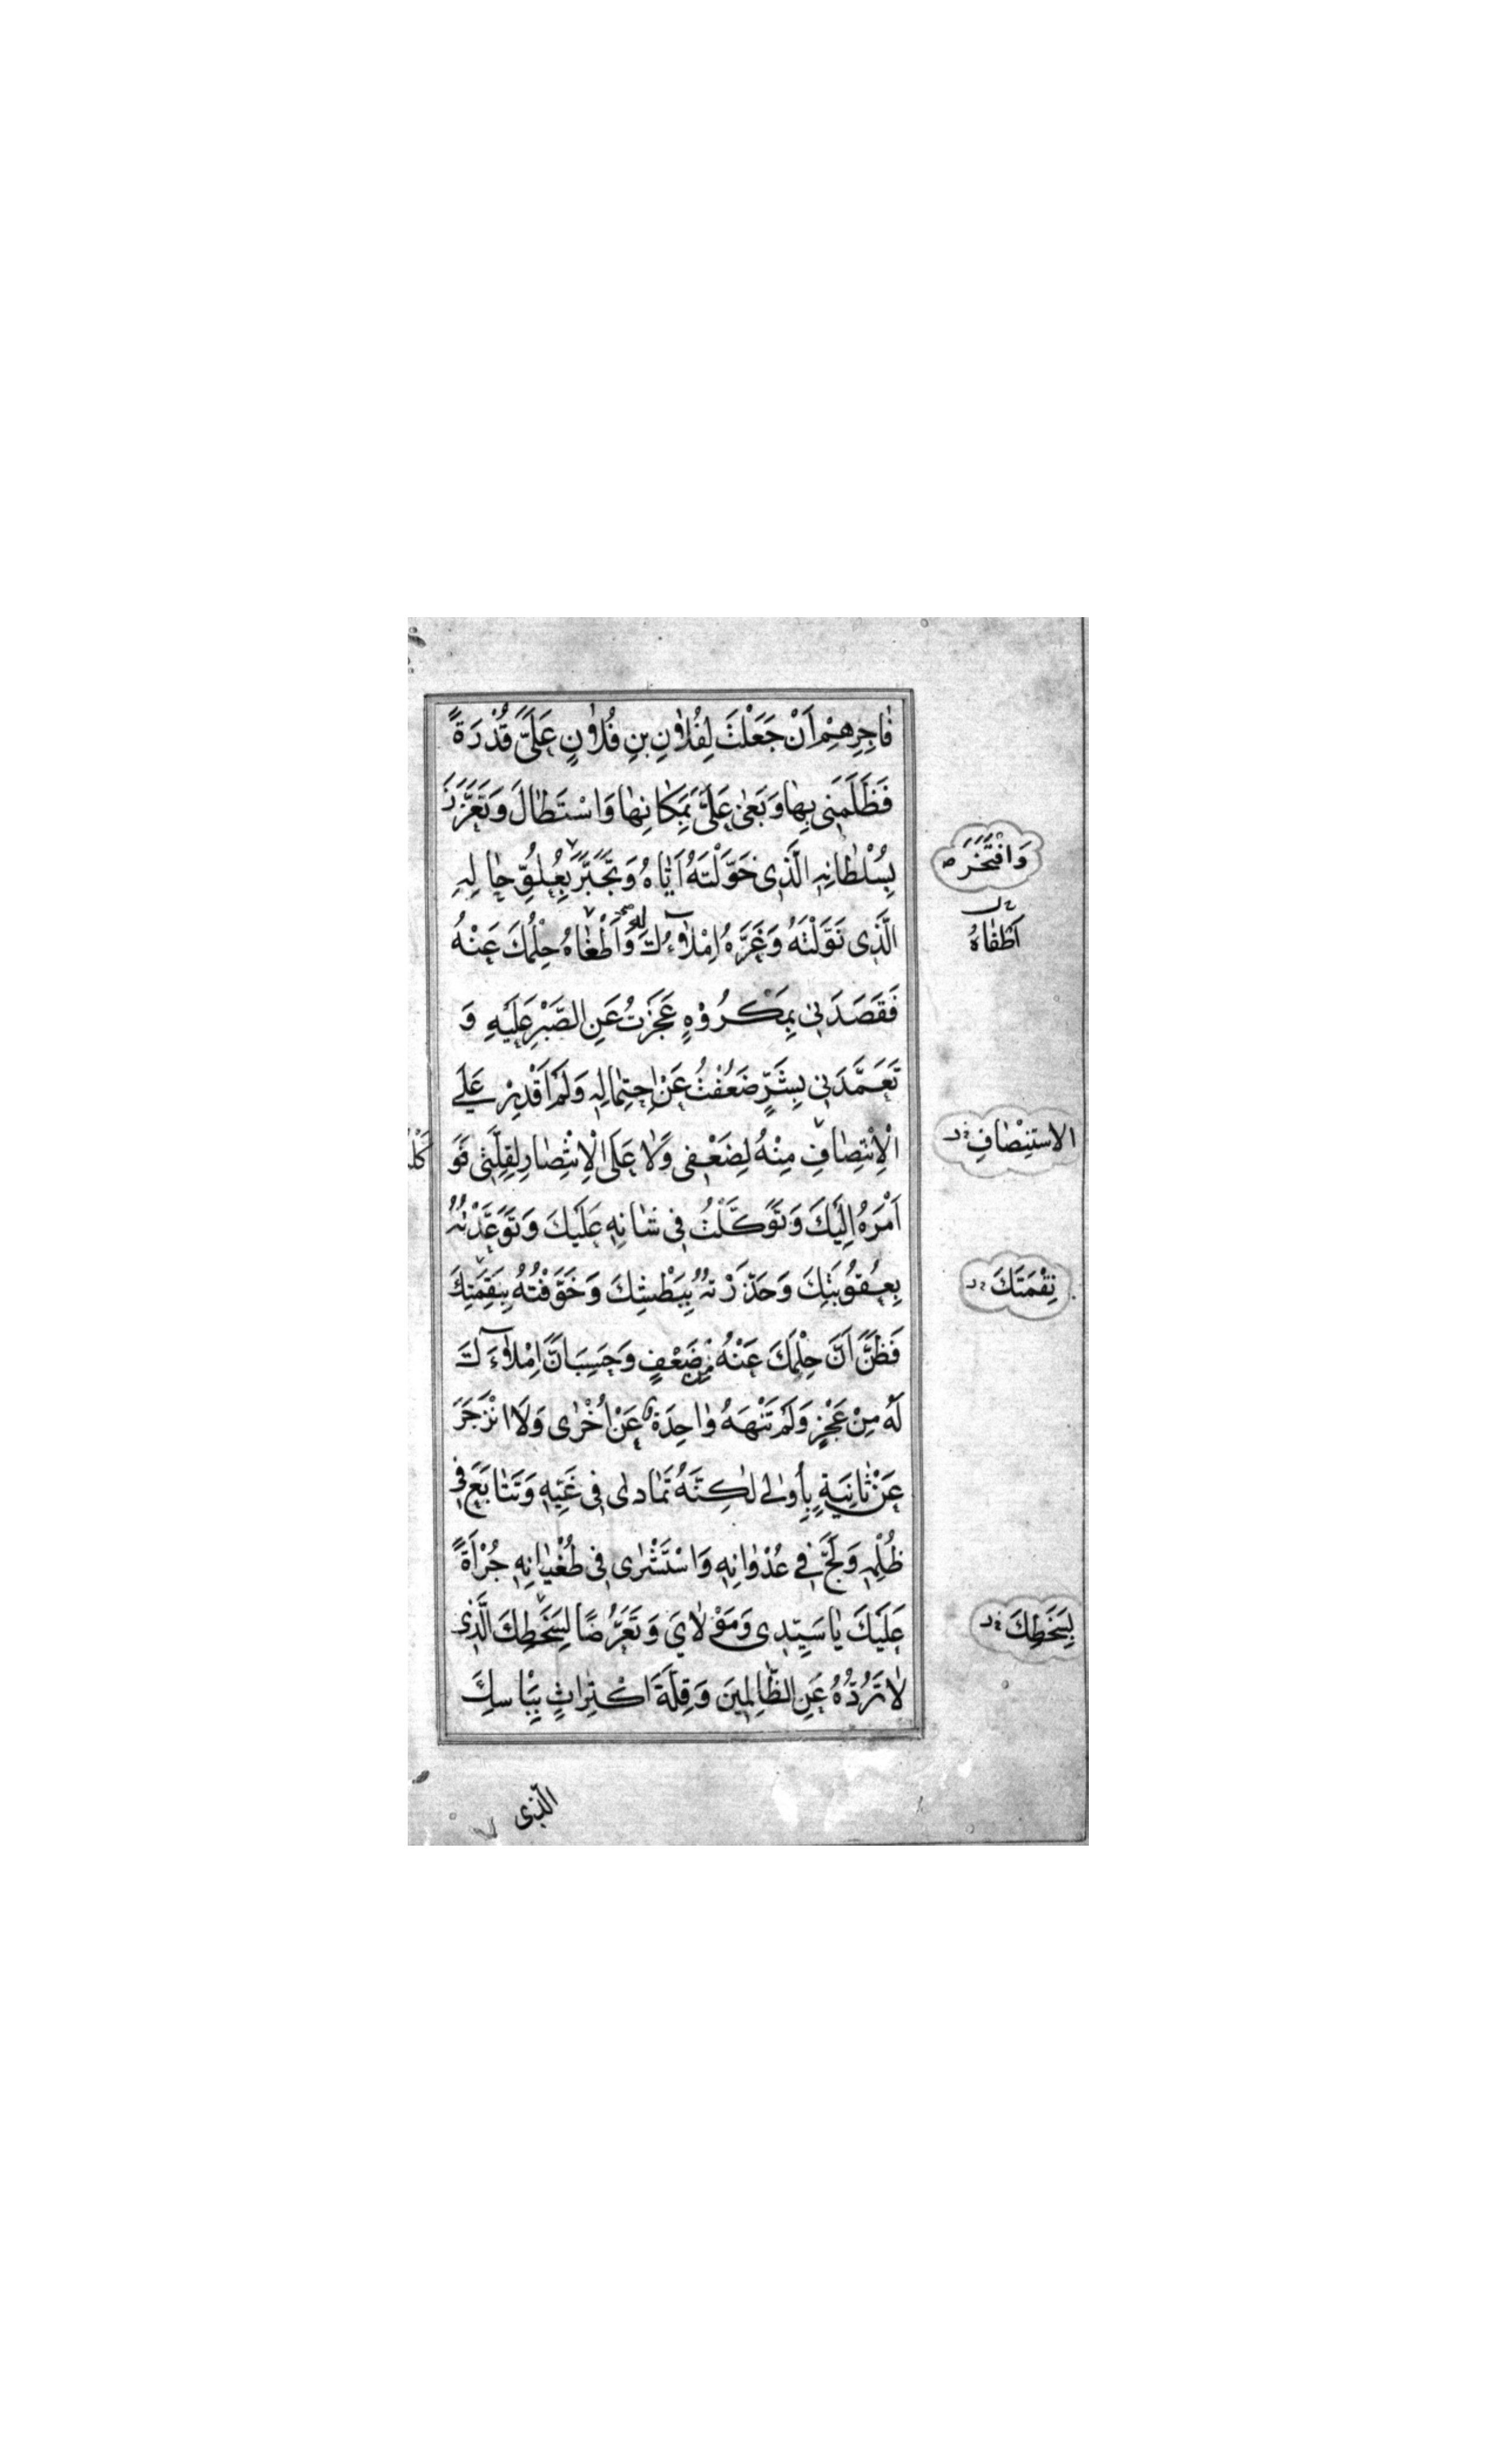 فٰاجِرِهِمْ اَنْ جَعَلْتَ لِفُلاٰنِ بنِ فُلاٰنٍ عَلَىَّ قُدْرَةً
فَظَلَمَنى بِهٰا وَبَغٰى عَلَىَّ بِمَكٰانِهٰا وَاسْتَطٰالَ وَتَعَزَّزَ
بِسُلْطٰانِهِ الَّذى خَوَّلْتَهُ اَيّٰاهُ وَتَجَبَّرَ بِعُلُوِّ حٰالِهِ
وَافْتَخَرَ
الَّذى نَوَّلْتَهُ وَغَرَّهُ اِمْلاٰؤُكَ لَهُ وَاَطْغٰاهُ حِلْمُكَ عَنْهُ
اَطْفٰاهُ
فَقَصَدَنى بِمَكْرُوْهٍ عَجَزْتُ عَنِ الصَّبْرِ عَلَيْهِ وَ
تَعَمَّدَنى بِشَرٍّ ضَعُفْتُ عَنْ اِحْتِمٰالِهِ وَلَمْ اَقْدِرْ عَلٰى
الْاِنْتِصٰافِ مِنْهُ لِضَعْفى وَلاٰ عَلَى الْاِنْتِصٰارِ لِقِلَّتى فَوَ
كَلْتُ
الاستِنْصٰافِ
اَمْرَهُ اِلَيْكَ وَتَوَكَّلْتُ فى شٰانِهِ عَلَيْكَ وَتَوَعَّدْتُهُ
بِعُقُوبَتِكَ وَحَذَّرْتُهُ بِبَطْشِكَ وَخَوَّفْتُهُ بِنَقِمَتِكَ
نِقْمَتَكَ
فَظَنَّ اَنَّ حِلْمَكَ عَنْهُ مِنْ ضَعْفٍ وَحَسِبَ اَنَّ اِمْلاٰءَكَ
لَهُ مِنْ عَجْزٍ وَلَمْ تَنْهَهُ وٰاحِدَةٌ عَنْ اُخْرٰى وَلَا انْزَجَرَ
عَنْ ثٰانِيَةٍ بِاُولٰى لٰكِنَّهُ تَمٰادٰى فى غَيِّهِ وَتَتٰابَعَ فى
ظُلْمِهِ وَلَجَّ فى عُدْوٰانِهِ وَاسْتَشْرٰى فى طُغْيٰانِهِ جُرْاَةً
عَلَيْكَ يٰا سَيِّدى وَمَوْلاٰيَ وَتَعَرُّضًا لِسَخَطِكَ الَّذى
لِسَخَطِكَ
لاٰ تَرُدُّهُ عَنِ الظّٰالِمينَ وَقِلَّةَ اكْتِرٰاثٍ بِبَاْسِكَ
الَّذى